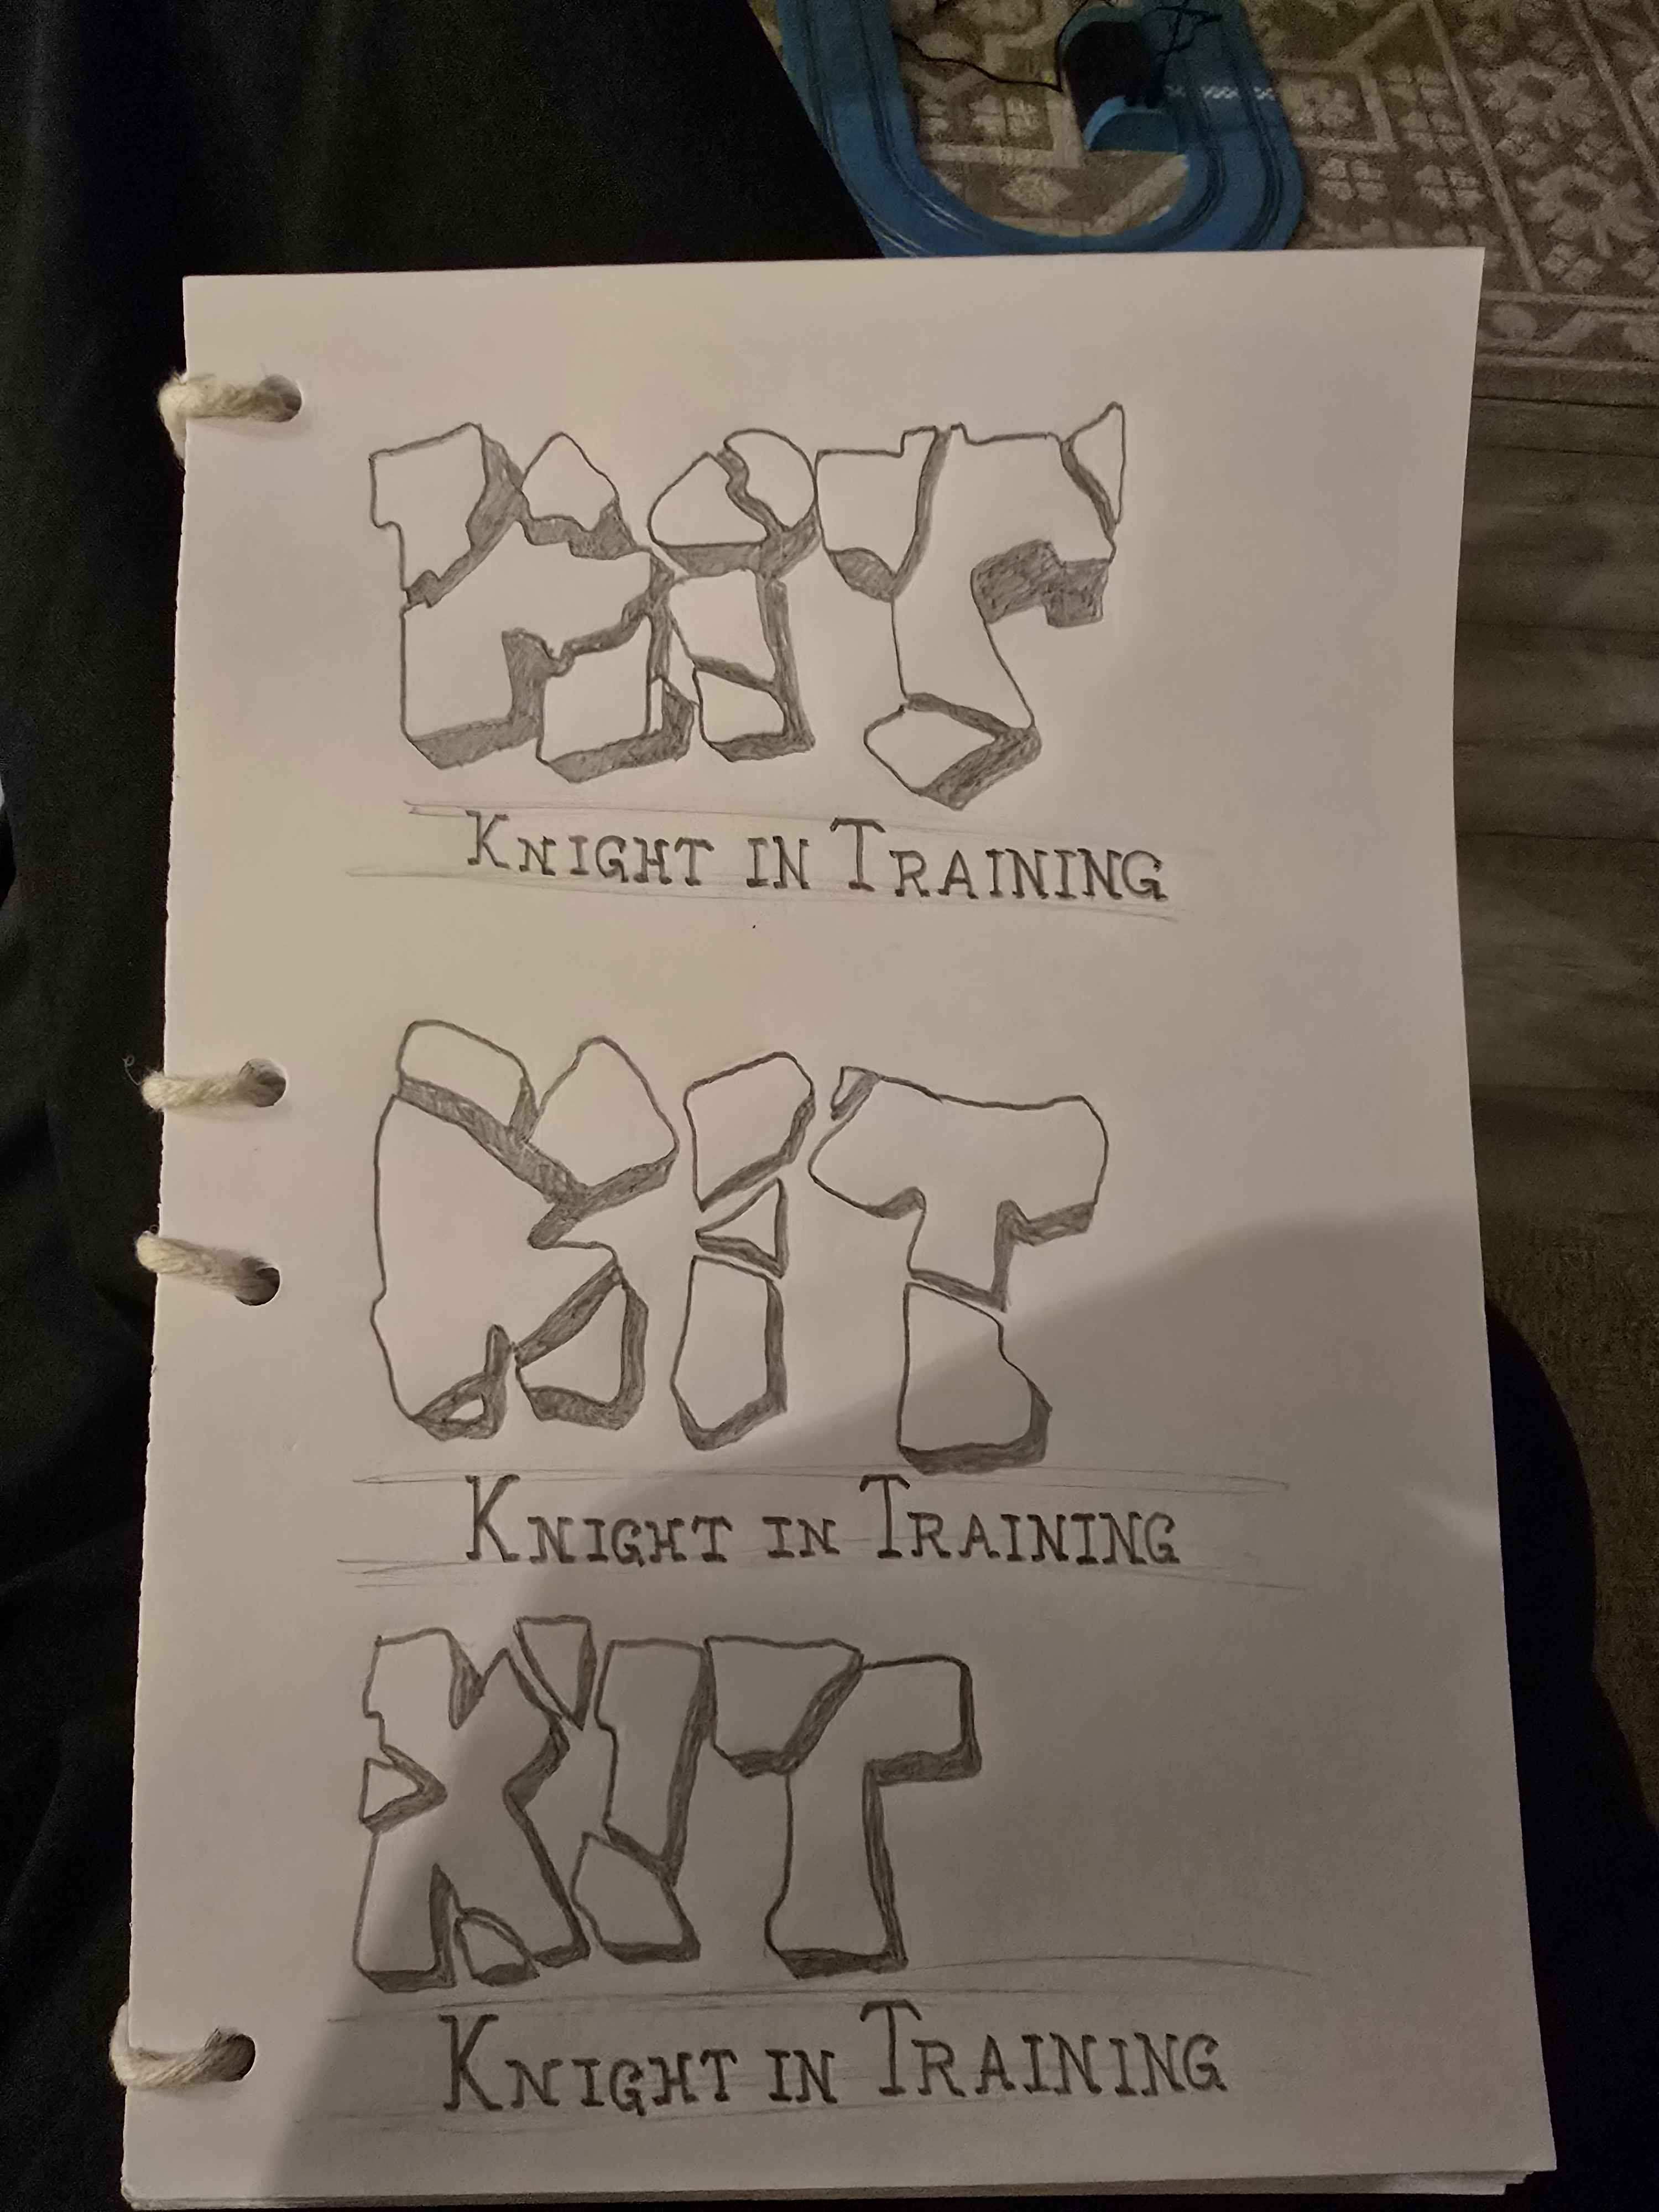 KiT
KNIGHT IN TRAINING
KIT
KNIGHT IN TRAINING
KIT
KNIGHT IN TRAINING